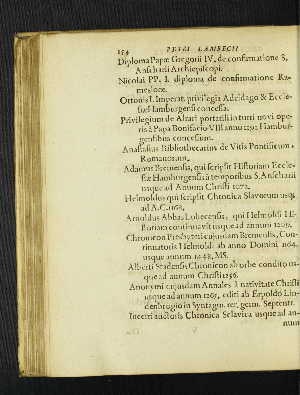 254 PETRI LAMBECII
Diploma Papæ Gregorii IV. de confirmatione S.
Anscharii Archiepiscopi.
Nicolai PP. I. diploma de confirmatione Ra-
mesloæ.
Ottonis I. Imperat. privilegia Adeldago & Eccle-
siæ Hamburgensi concessa.
Privilegium de Altari portatili in turri novi ope-
ris à Papa Bonifacio VIII anno Hambur-
gensibus concessum.
Anastasius Bibliothecarius de Vitis Pontificum
Romanorum.
Adamus Bremensis, qui scripsit Historiam Eccle-
siæ Hamburgensis à temporibus S. Anscharii
usque ad Annum Christi 1072.
Helmoldus qui scripsit Chronica Slavorum usq;
ad A.C. 1168.
Arnoldus Abbas Lubecensis, qui Helmoldi Hi-
storiam continuavit usque ad annum 1209.
Chronicon Presbyteri cujusdam Bremensis, Con-
tinuatoris Helmoldi ab anno Domini 1164.
usque annum 1448. MS.
Alberti Stadensis Chronicon ab orbe condito us-
que ad annum Christi 1256.
Anonymi cujusdam Annales à nativitate Christi
usque ad annum 1265, editi ab Erpoldo Lin-
denbrogio in Syntagm. rer. germ. Septentr.
Incerti auctoris Chronica Sclavica usque ad an-
num